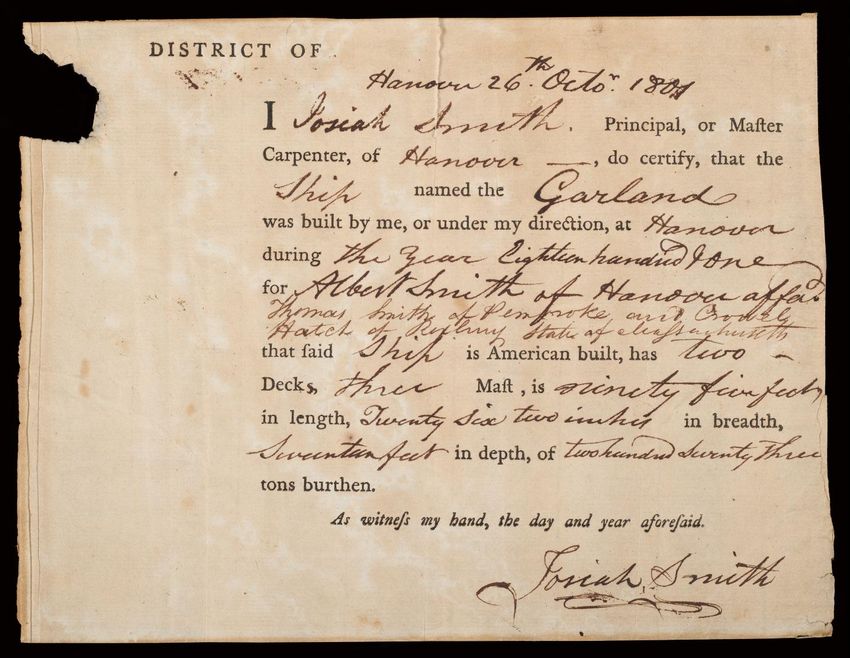 DISTRICT OF
Hanover 26th Octor. 1801
I Josiah Smith. Principal, or Maſter
Carpenter, of Hanover —, do certify, that the
Ship named the Garland
was built by me, or under my direction, at Hanover
during the Year Eighteen hundred & one
for Albert Smith of Hanover affod.
Thomas Smith of Pembroke and Crowel
Hatch of Roxbury State of Massachusetts
that ſaid Ship is American built, has two –
Decks, three Maſt , is ninety five feet
in length, Twenty Six two inches in breadth,
Seventeen feet in depth, of two hundred Seventy three
tons burthen.
As witneſs my hand, the day and year aforeſaid.
Josiah Smith